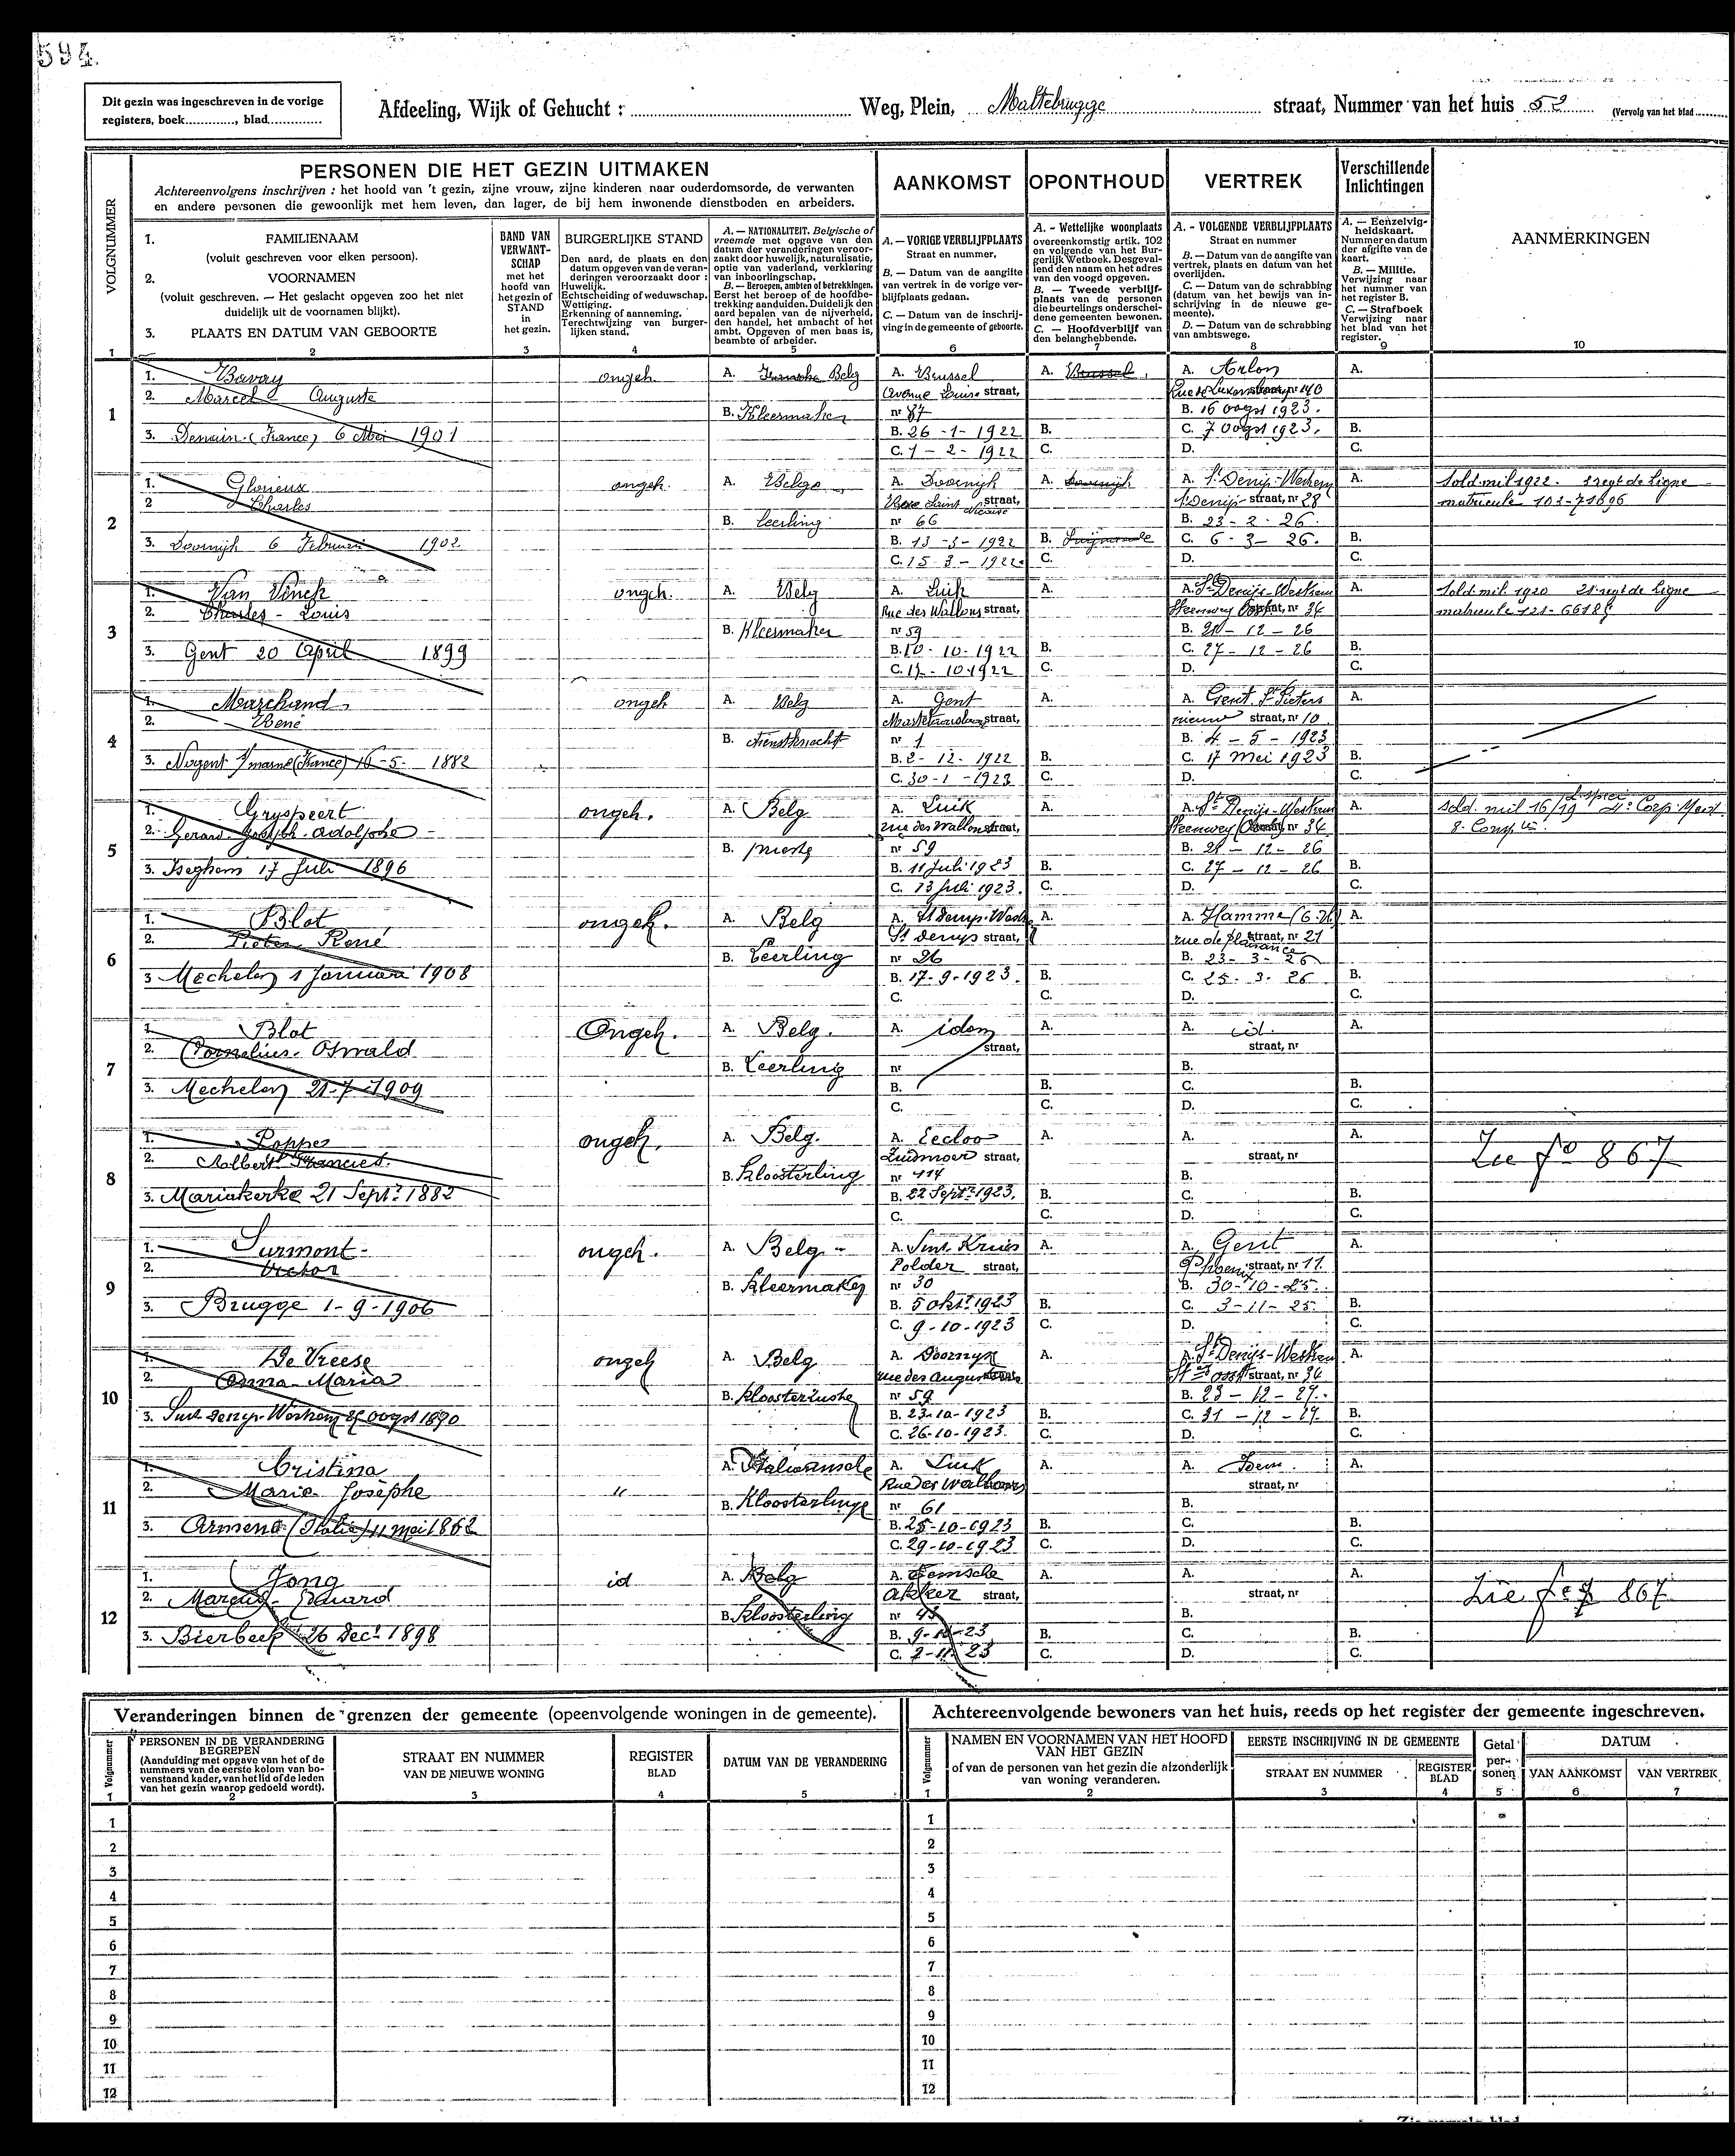 594.
Dit gezin was ingeschreven in de vorige
registers, boek............, blad.............
Afdeeling, Wijk of Gehucht : ........ Weg, Plein, Maltebrugge straat, Nummer van het huis 52 (Vervolg van het blad
VOLGNUMMER
PERSONEN DIE HET GEZIN UITMAKEN
Achtereenvolgens inschrijven : het hoofd van 't gezin, zijne vrouw, zijne kinderen naar ouderdomsorde, de verwanten
en andere personen die gewoonlijk met hem leven, dan lager, de bij hem inwonende dienstboden en arbeiders.
AANKOMST
OPONTHOUD
VERTREK
Verschillende
Inlichtingen
AANMERKINGEN
1. FAMILIENAAM
(voluit geschreven voor elken persoon).
2. VOORNAMEN
(voluit geschreven. — Het geslacht opgeven zoo het niet
duidelijk uit de voornamen blijkt).
3. PLAATS EN DATUM VAN GEBOORTE
BAND VAN
VERWANT-
SCHAP
met het
hoofd van
het gezin of
STAND
in
het gezin.
BURGERLIJKE STAND
Den aard, de plaats en den
datum opgeven van de veran-
deringen veroorzaakt door :
Huwelijk.
Echtscheiding of weduwschap.
Wettiging.
Erkenning of aanneming.
Terechtwijzing van burger-
lijken stand.
A. — NATIONALITEIT. Belgische of
vreemde met opgave van den
datum der veranderingen veroor-
zaakt door huwelijk, naturalisatie,
optie van vaderland, verklaring
van inboorlingschap.
B. — Beroepen, ambten of betrekkingen.
Eerst het beroep of de hoofdbe-
trekking aanduiden. Duidelijk den
aard bepalen van de nijverheid,
den handel, het ambacht of het
ambt. Opgeven of men baas is,
beambte of arbeider.
A. — VORIGE VERBLIJFPLAATS
Straat en nummer.
B. — Datum van de aangifte
van vertrek in de vorige ver-
blijfplaats gedaan.
C. — Datum van de inschrij-
ving in de gemeente of geboorte.
A. - Wettelijke woonplaats
overeenkomstig artik. 102
en volgende van het Bur-
gerlijk Wetboek. Desgeval-
lend den naam en het adres
van den voogd opgeven.
B. — Tweede verblijf-
plaats van de personen
die beurtelings onderschei-
dene gemeenten bewonen.
C. — Hoofdverblijf van
den belanghebbende.
A. - VOLGENDE VERBLIJFPLAATS
Straat en nummer
B. — Datum van de aangifte van
vertrek, plaats en datum van het
overlijden.
C. — Datum van de schrabbing
(datum van het bewijs van in-
schrijving in de nieuwe ge-
meente).
D. — Datum van de schrabbing
van ambtswege.
A. — Eenzelvig-
heidskaart.
Nummer en datum
der afgifte van de
kaart.
B. — Militie.
Verwijzing naar
het nummer van
het register B.
C. — Strafboek
Verwijzing naar
het blad van het
register.
1 2 3 4 5 6 7 8 9 10
1
1. Bavay ongeh. A. Fransche Belg A. Brussel A. Brussel A. Arlon A.
2. Marcel Auguste Avenue Louise straat, Rue de Luxembourg straat, nr 140
B. Kleermaker nr 87 B. 16 oogst 1923.
3. Denain (France) 6 Mei 1901 B. 26 - 1 - 1922 B. C. 7 oogst 1923. B.
C. 1 - 2 - 1922 C. D. C.
2
1. Glorieux ongeh. A. Belge A. Doornijk A. Doornijk A. St Denijs-Westrem A. Sold. mil 1922. 3 regt de Ligne
2 Charles straat, St Denijs straat, nr 28 matricule 103-71696
B. Leerling nr 66 B. 23 - 2 - 26.
3. Doornijk 6 Februari 1902 B. 13 - 3 - 1922 B. C. 6 - 3 - 26. B.
C. 15 - 3 - 1922. C. D. C.
3
1. Van Vinck ongeh. A. Belg A. Luik A. A. St Denijs-Westrem A. Sold. mil. 1920 21 regt de Ligne
2. Charles - Louis Rue des Wallons straat, Steenweg Oost straat, nr 34 matricule 121-6618
B. Kleermaker nr 59 B. 21 - 12 - 26
3. Gent 20 April 1899 B. 10 - 10 - 1922 B. C. 27 - 12 - 26 B.
C. 12 - 10 - 1922 C. D. C.
4
1. Marchand ongeh A. Belg A. Gent A. A. Gent St Pieters A.
2. René straat, nieuw straat, nr 10
B. dienstknecht nr 1 B. 4 - 5 - 1923
3. Nogent s/ marne (France) 16 - 5 - 1882 B. 2 - 12 - 1922 B. C. 17 Mei 1923 B.
C. 30 - 1 - 1923 C. D. C.
5
1. Gryspeert ongeh. A. Belg A. Luik A. A. St Denijs-Westrem A. Sold. mil 16/19
2. Gerard Joseph Adolphe rue des Wallons straat, Steenweg (Oost) straat, nr 34
B. priester nr 59 B. 21 - 12 - 26
3. Iseghem 17 Juli 1896 B. 11 Juli 1923 B. C. 27 - 12 - 26 B.
C. 13 Juli 1923. C. D. C.
6
1. Blot ongeh. A. Belg A. St Denys-Westre A. A. Hamme A.
2. Pieter René St Denys straat, rue de plaisance straat, nr 21
B. Leerling nr 26 B. 23 - 3 - 26
3 Mechelen 1 Januari 1908 B. 17 - 9 - 1923. B. C. 25 - 3 - 26 B.
C. C. D. C.
7
1. Blot Ongeh. A. Belg. A. idem A. A. id. A.
2. Cornelius Oswald straat, straat, nr
B. Leerling nr B.
3. Mechelen 21-7-1909 B. B. C. B.
C. C. D. C.
8
1. Poppes ongeh. A. Belg. A. Eecloo A. A. A. Zie fo 867
2. Albert Francies. Zuidmoer straat, straat, nr
B. kloosterling nr 114 B.
3. Mariakerke 21 Septr 1882 B. 22 Septr 1923. B. C. B.
C. C. D. C.
9
1. Surmont ongeh. A. Belg A. Sint Kruis A. A. Gent A.
2. Victor Polder straat, Phoenix straat, nr 11.
B. kleermaker nr 30 B. 30-10-25.
3. Brugge 1-9-1906 B. 5 okt. 1923 B. C. 3-11-25. B.
C. 9-10-1923 C. D. C.
10
1. De Vreese ongeh A. Belg A. Doornyk A. A. St Denijs-Westrem A.
2. Anna-Maria rue des augustins straat, nr 34
B. kloosterzuster nr 59 B. 23 - 12 - 27.
3. Sint Denys-Westrem 25 oogst 1890 B. 23-10-1923 B. C. 31 - 12 - 27. B.
C. 26-10-1923. C. D. C.
11
1. Cristina A. Italiaansche A. Luik A. A. Idem. A.
2. Marie Josèphe " Rue des Wallons straat, nr
B. Kloosterlinge nr 61 B.
3. Armeno (Italie) 11 mei 1862 B. 25-10-1923 B. C. B.
C. 29-10-1923 C. D. C.
12
1. Jong id A. Belg A. Temsche A. A. A. Zie fo 867
2. Marcus - Eduard akker straat, straat, nr
B. Kloosterling nr 43 B.
3. Bierbeek 26 Decr 1898 B. 9-10-23 B. C. B.
C. 2-11-23 C. D. C.
Veranderingen binnen de grenzen der gemeente (opeenvolgende woningen in de gemeente).
Volgnummer
PERSONEN IN DE VERANDERING
BEGREPEN
(Aanduiding met opgave van het of de
nummers van de eerste kolom van bo-
venstaand kader, van het lid of de leden
van het gezin waarop gedoeld wordt).
STRAAT EN NUMMER
VAN DE NIEUWE WONING
REGISTER
BLAD
DATUM VAN DE VERANDERING
1 2 3 4 5
1
2
3
4
5
6
7
8
9
10
11
12
Achtereenvolgende bewoners van het huis, reeds op het register der gemeente ingeschreven.
Volgnummer
NAMEN EN VOORNAMEN VAN HET HOOFD
VAN HET GEZIN
of van de personen van het gezin die afzonderlijk
van woning veranderen.
EERSTE INSCHRIJVING IN DE GEMEENTE
STRAAT EN NUMMER
REGISTER
BLAD
Getal
per-
sonen
DATUM
VAN AANKOMST
VAN VERTREK
1 2 3 4 5 6 7
1
2
3
4
5
6
7
8
9
10
11
12